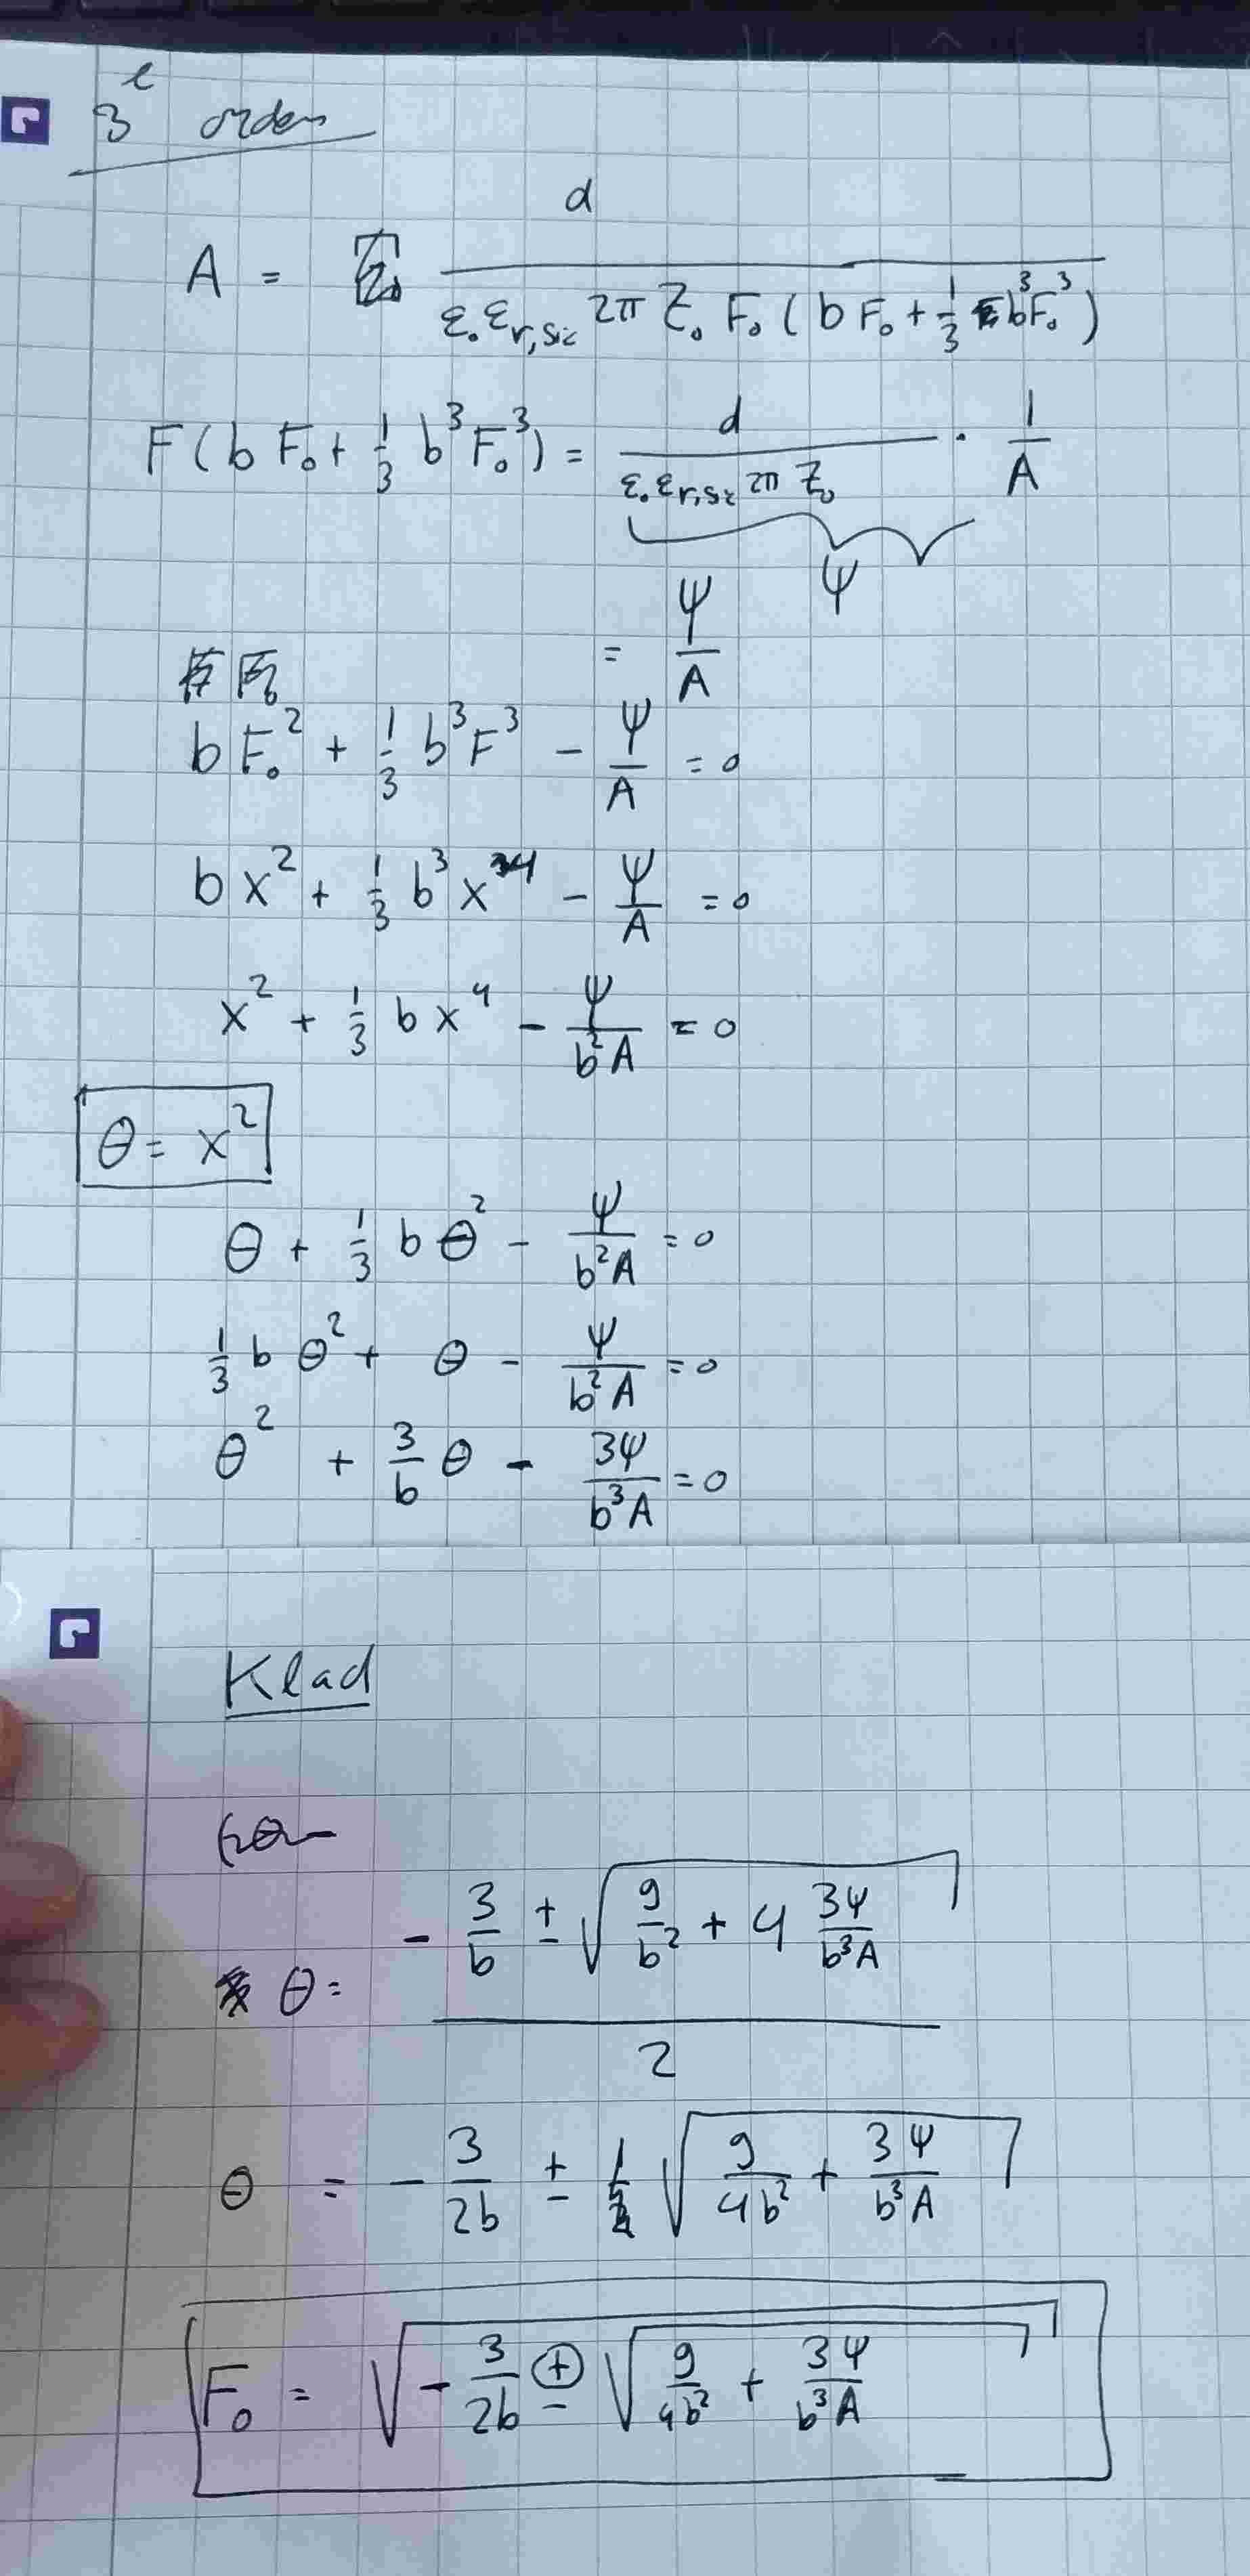 3e orden
A = d / (ε₀ εr,sic 2π Z₀ F₀ (b F₀ + 1/3 b³F₀³))
F(b F₀ + 1/3 b³ F₀³) = d / (ε₀ εr,sic 2π Z₀) · 1/A
ψ
= ψ/A
b F₀² + 1/3 b³ F³ - ψ/A = 0
b x² + 1/3 b³ x⁴ - ψ/A = 0
x² + 1/3 b x⁴ - ψ/(b²A) = 0
θ = x²
θ + 1/3 b θ² - ψ/(b²A) = 0
1/3 b θ² + θ - ψ/(b²A) = 0
θ² + 3/b θ - 3ψ/(b³A) = 0
Klad
θ = (-3/b ± √(9/b² + 4 3ψ/(b³A))) / 2
θ = -3/(2b) ± √(9/(4b²) + 3ψ/(b³A))
F₀ = √(-3/(2b) ± √(9/(4b²) + 3ψ/(b³A)))